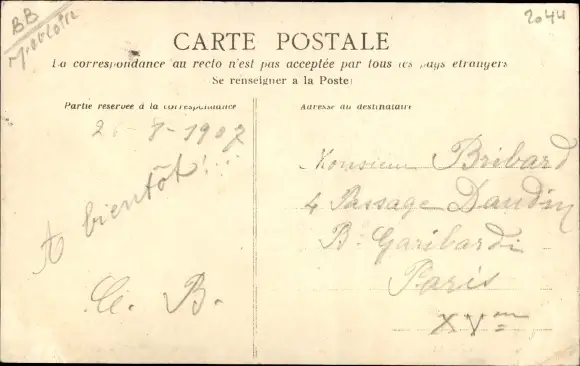 BB
2044
CARTE POSTALE
La correspondance au recto n'est pas acceptée par tous les pays étrangers
Se renseigner a la Poste
Partie reservee à la correspondance
-1907
A bientôt!...
B.
Adresse du destinataire
Monsieur Bribard
4 Passage Daudin
Bd Garibardi
Paris
XVme